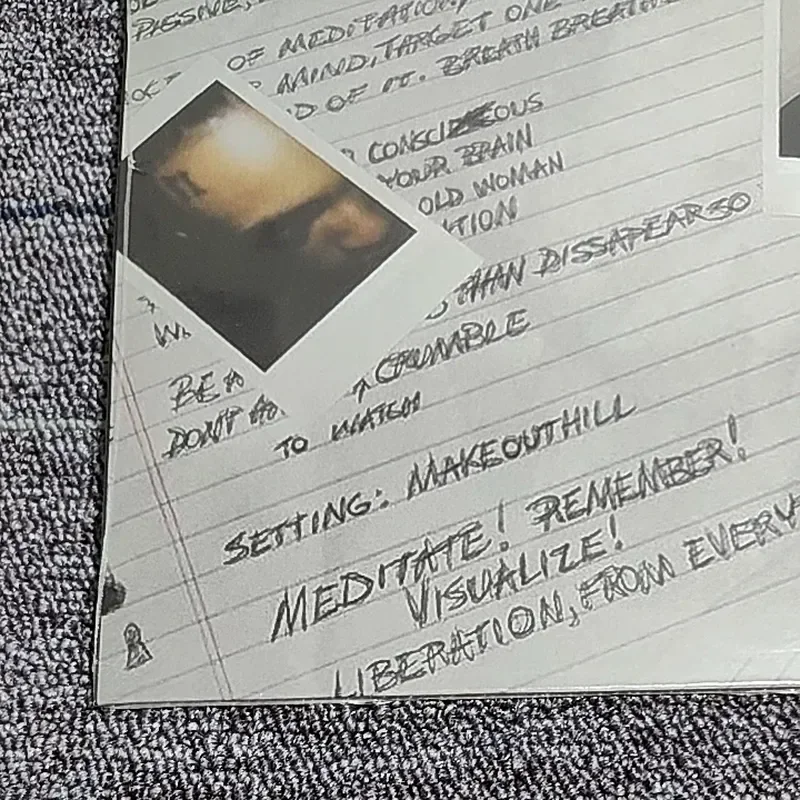 PASSIVE,
OF MEDITATION,
MIND, TARGET ONE
OF IT. BREATH BREATHE
CONSCIOUS
YOUR BRAIN
OLD WOMAN
THAN DISSAPEAR SO
CRUMBLE
BE A
DON'T
TO WATCH
SETTING: MAKEOUTHILL
MEDITATE! REMEMBER!
VISUALIZE!
LIBERATION, FROM EVERY